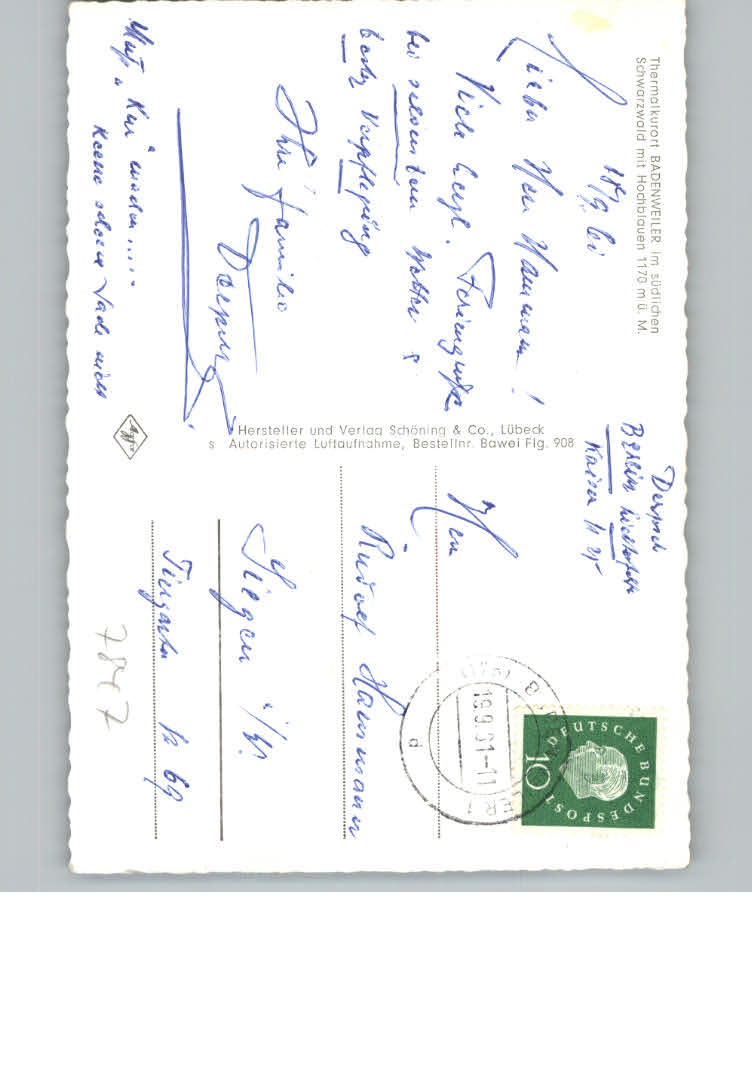 Thermalkurort BADENWEILER im südlichen
Schwarzwald mit Hochblauen 1170 m ü. M.
18/9 61
Lieber Herr Hammann!
Viele herzl. Feriengrüße
bei schönstem Wetter &
bester Verpflegung
Ihre Familie
Muß "Kur" machen.....
Hersteller und Verlag Schöning & Co., Lübeck
s Autorisierte Luftaufnahme, Bestellnr. Bawei Flg. 908
Agfa
Berlin
Kaiser
Herrn
Rudolf Hammann
Siegen i/W.
Tiergarten
69
7847
(17b)
18.9.61-11
d
DEUTSCHE BUNDESPOST
10